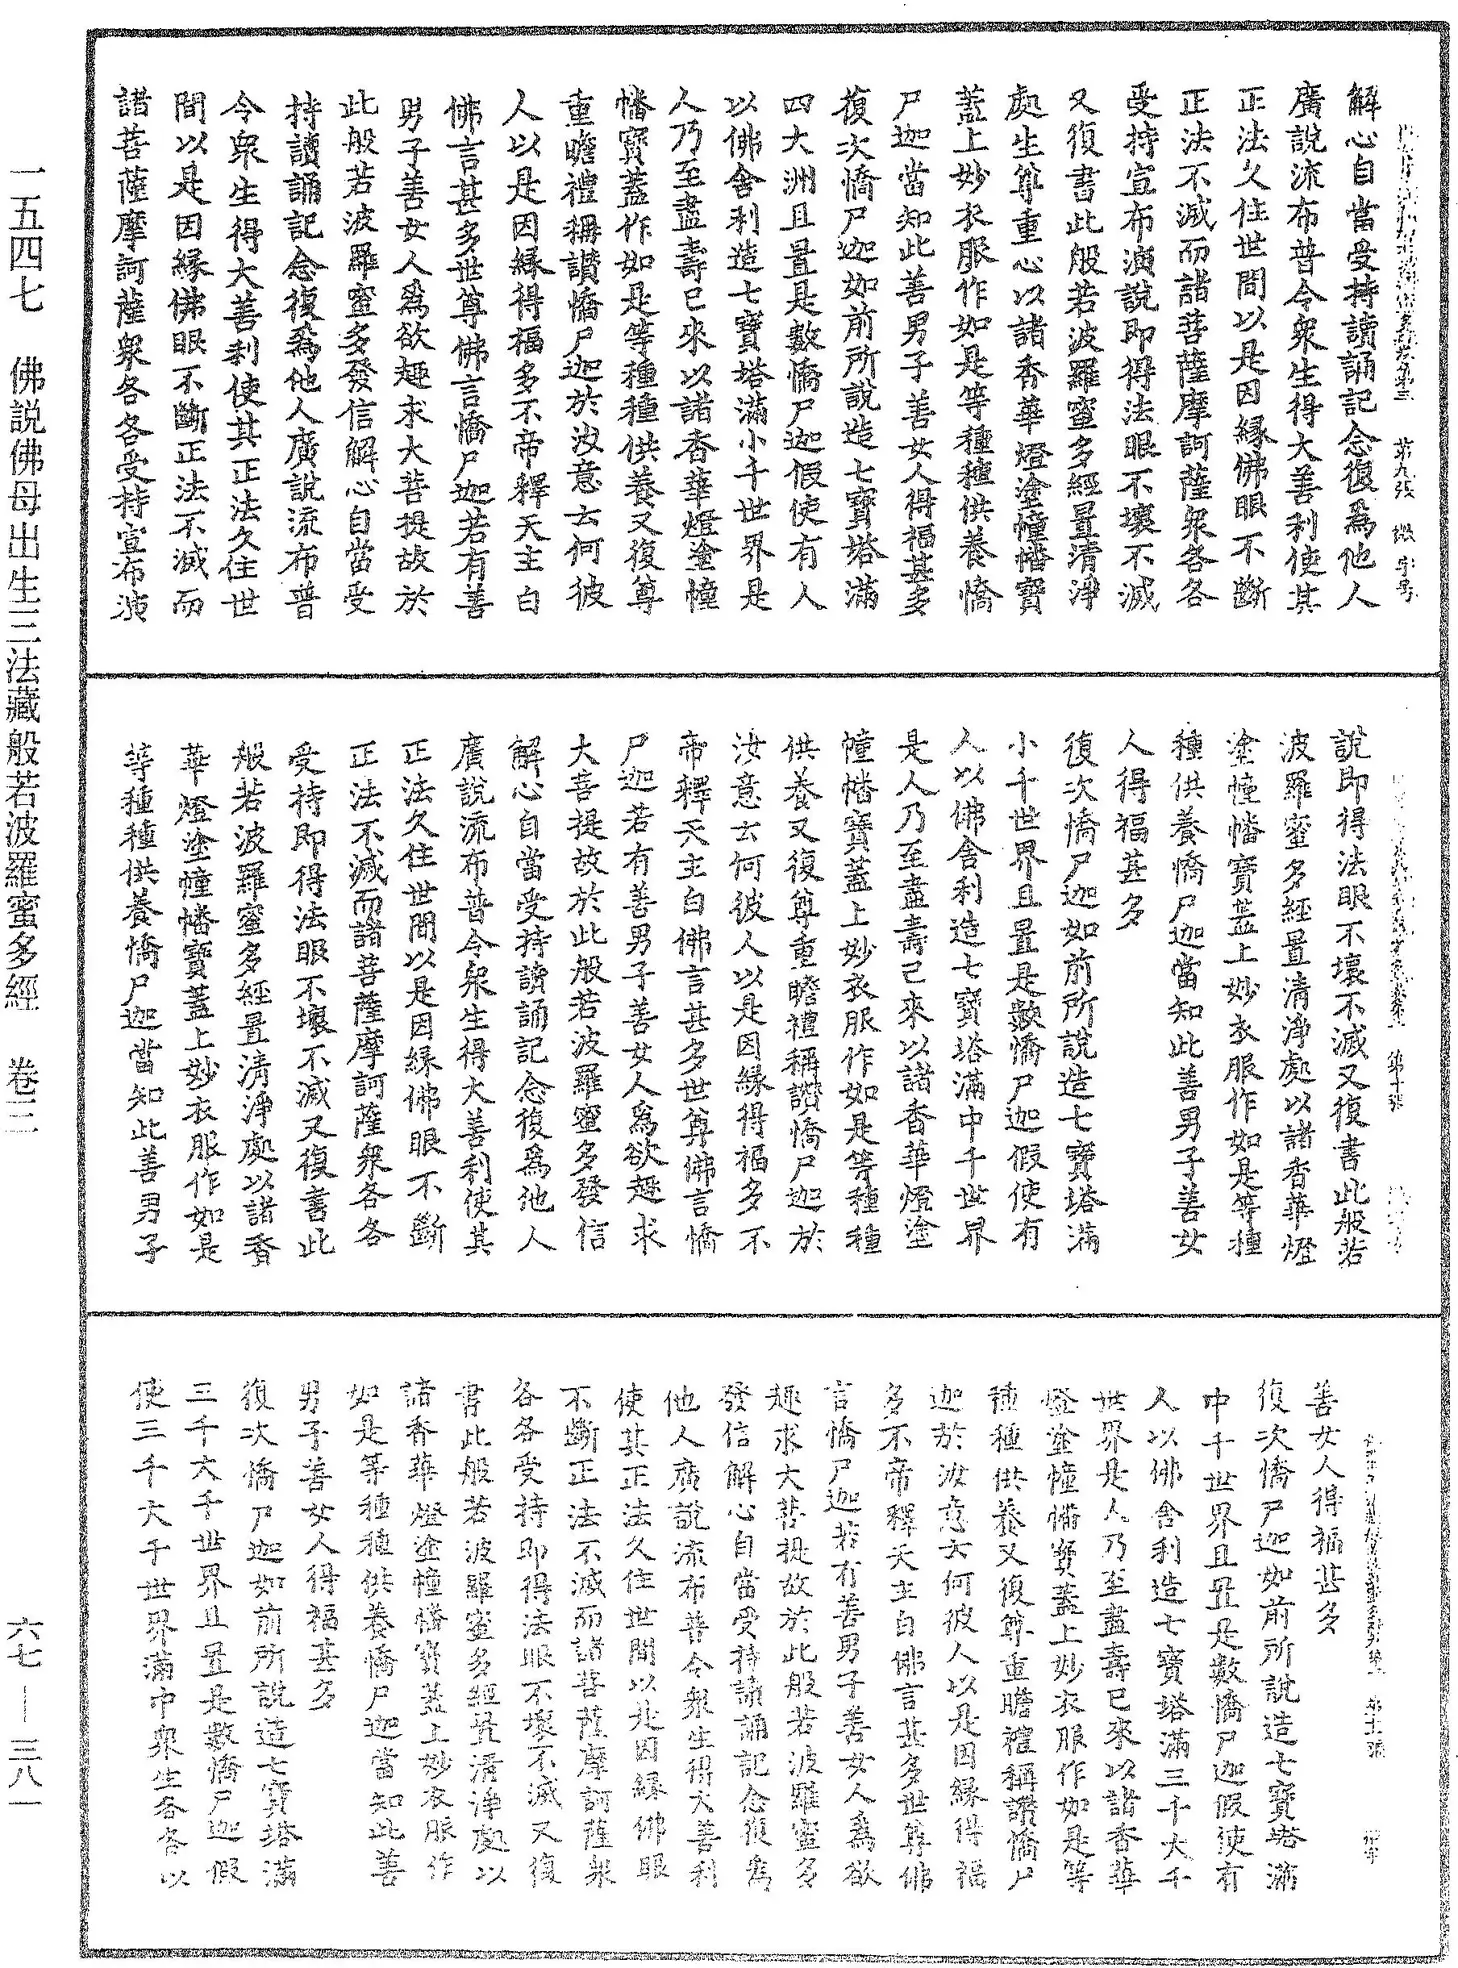 解心自當受持讀誦記念復爲他人
廣說流布普令衆生得大善利使其
正法久住世間以是因緣佛眼不斷
正法不滅而諸菩薩摩訶薩衆各各
受持宣布演說即得法眼不壞不滅
又復書此般若波羅蜜多經置清淨
處生尊重心以諸香華燈塗幢幡寶
蓋上妙衣服作如是等種種供養憍
尸迦當知此善男子善女人得福甚多
復次憍尸迦如前所說造七寶塔滿
四大洲且置是數憍尸迦假使有人
以佛舍利造七寶塔滿小千世界是
人乃至盡壽已來以諸香華燈塗幢
幡寶蓋作如是等種種供養又復尊
重瞻禮稱讚憍尸迦於汝意云何彼
人以是因緣得福多不帝釋天主白
佛言甚多世尊佛言憍尸迦若有善
男子善女人爲欲趣求大菩提故於
此般若波羅蜜多發信解心自當受
持讀誦記念復爲他人廣說流布普
令衆生得大善利使其正法久住世
間以是因緣佛眼不斷正法不滅而
諸菩薩摩訶薩衆各各受持宣布演
說即得法眼不壞不滅又復書此般若
波羅蜜多經置清淨處以諸香華燈
塗幢幡寶蓋上妙衣服作如是等種
種供養憍尸迦當知此善男子善女
人得福甚多
復次憍尸迦如前所說造七寶塔滿
小千世界且置是數憍尸迦假使有
人以佛舍利造七寶塔滿中千世界
是人乃至盡壽已來以諸香華燈塗
幢幡寶蓋上妙衣服作如是等種種
供養又復尊重瞻禮稱讚憍尸迦於
汝意云何彼人以是因緣得福多不
帝釋天主白佛言甚多世尊佛言憍
尸迦若有善男子善女人爲欲趣求
大菩提故於此般若波羅蜜多發信
解心自當受持讀誦記念復爲他人
廣說流布普令衆生得大善利使其
正法久住世間以是因緣佛眼不斷
正法不滅而諸菩薩摩訶薩衆各各
受持即得法眼不壞不滅又復書此
般若波羅蜜多經置清淨處以諸香
華燈塗幢幡寶蓋上妙衣服作如是
等種種供養憍尸迦當知此善男子
善女人得福甚多
復次憍尸迦如前所說造七寶塔滿
中千世界且置是數憍尸迦假使有
人以佛舍利造七寶塔滿三千大千
世界是人乃至盡壽已來以諸香華
燈塗幢幡寶蓋上妙衣服作如是等
種種供養又復尊重瞻禮稱讚憍尸
迦於汝意云何彼人以是因緣得福
多不帝釋天主白佛言甚多世尊佛
言憍尸迦若有善男子善女人爲欲
趣求大菩提故於此般若波羅蜜多
發信解心自當受持讀誦記念復爲
他人廣說流布普令衆生得大善利
使其正法久住世間以是因緣佛眼
不斷正法不滅而諸菩薩摩訶薩衆
各各受持即得法眼不壞不滅又復
書此般若波羅蜜多經置清淨處以
諸香華燈塗幢幡寶蓋上妙衣服作
如是等種種供養憍尸迦當知此善
男子善女人得福甚多
復次憍尸迦如前所說造七寶塔滿
三千大千世界且置是數憍尸迦假
使三千大千世界滿中衆生各各以
一五四七 佛說佛母出生三法藏般若波羅蜜多經 卷三
六七—三八一